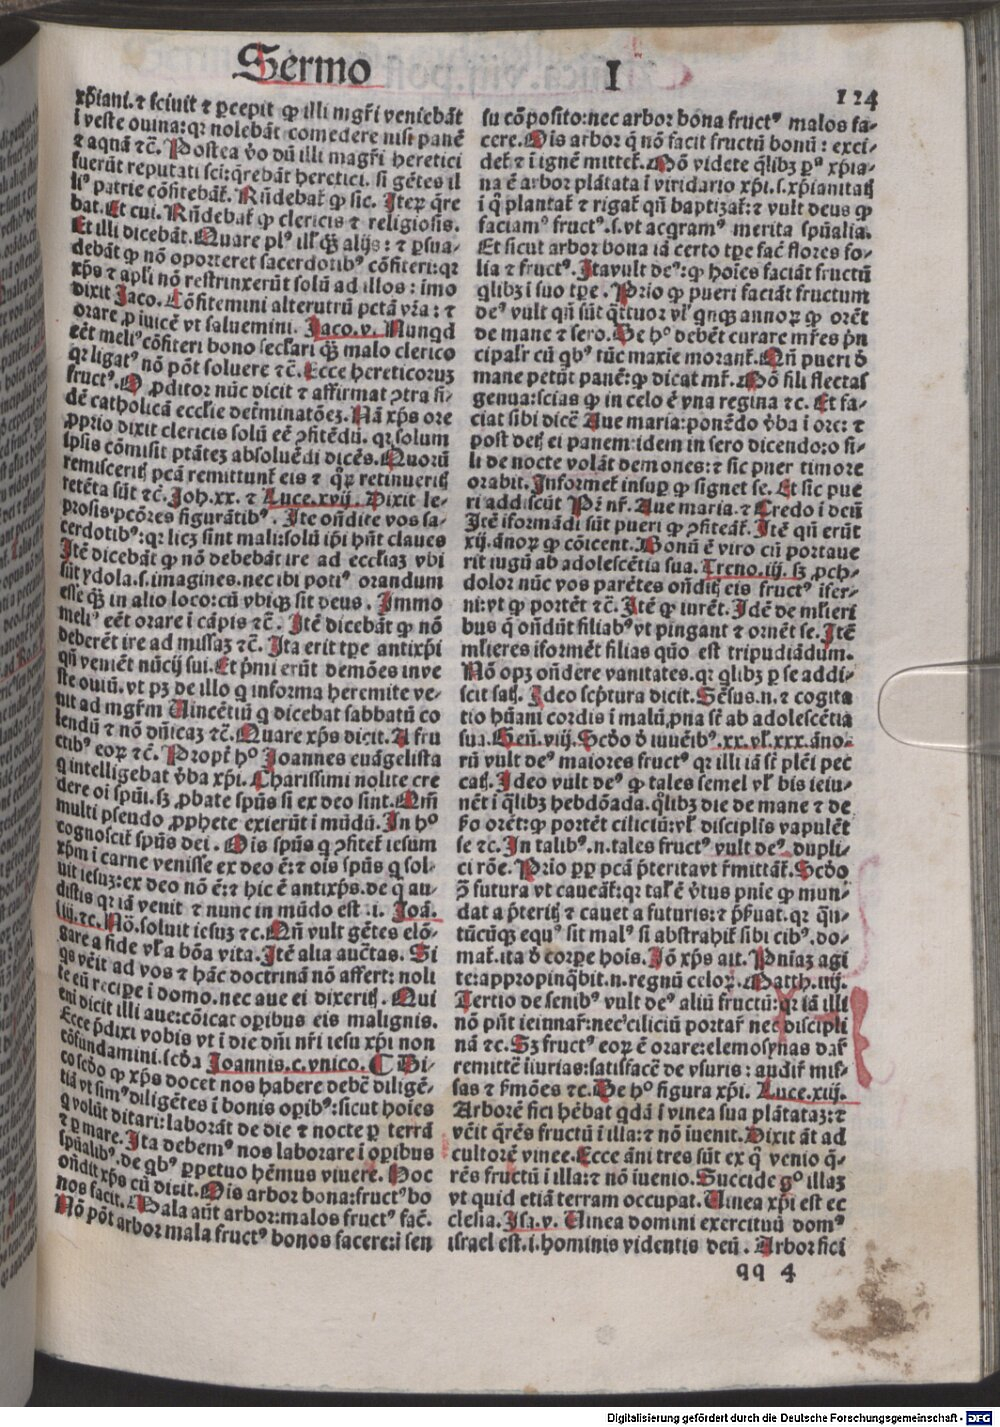 Sermo I
124
xp̄iani. ⁊ sciuit ⁊ ꝑcepit ꝙ illi mgr̄i veniebāt
ī veste ouina: qꝛ nolebāt comedere nisi panē
⁊ aquā ⁊c̄. Postea v̄o dū illi magr̄i heretici
fuerūt reputati sci: q̄rebāt heretici. si gētes il
liꝰ patrie cōfitebāt. Rn̄debāt ꝙ sic. Iteꝝ q̄re
bāt. Et cui. Rn̄debāt ꝙ clericis ⁊ religiosis.
Et illi dicebāt. Quare plꝰ ill̓ q̄ꝫ alijs: ⁊ ꝑsua-
debāt ꝙ nō oporteret sacerdotibꝰ cōfiteri: qꝛ
xp̄s ⁊ apl̓i nō restrinxerūt solū ad illos: imo
dixit Jaco. Cōfitemini alterutrū pctā vr̄a: ⁊
orare ꝓ iuicē vt saluemini. Jaco.v. Nunqd
eēt meliꝰ cōfiteri bono secl̓ari q̄ꝫ malo clerico
qꝛ ligatꝰ nō pōt soluere ⁊c̄. Ecce hereticoruꝫ
fructꝰ. O ꝓditor nūc dicit ⁊ affirmat ꝯtra fi-
dē catholicā eccl̓ie det̓minatōeꝫ. Nā xp̄s ore
ꝓprio dixit clericis solū eē ꝯfitēdū. qꝛ solum
ipsis cōmisit ptāteꝫ absoluēdi dicēs. Quorū
remiseritꝭ pcā remittunt̓ eis ⁊ q̄ꝝ retinueritꝭ
retēta sūt ⁊c̄. Joh.xx. ⁊ Luce.xvij. Dixit le-
prosis pctōres figurātibꝰ. Ite on̄dite vos sa-
cerdotibꝰ: qꝛ licꝫ sint mali: solū ip̄i hn̄t claues
Itē dicebāt ꝙ nō debebāt ire ad eccl̓iaꝫ vbi
sūt ydola .s. imagines. nec ibi potiꝰ orandum
esse q̄ꝫ in alio loco: cū vbiqꝫ sit deus. Immo
meliꝰ eēt orare ī cāpis ⁊c̄. Itē dicebāt ꝙ nō
deberēt ire ad missaꝫ ⁊c̄. Ita erit tꝑe antixp̄i
qn̄ veniēt nūcij sui. Et p̄mi erūt demōes inue
ste ouiū. vt pꝫ de illo q informa heremite ve-
nit ad mgr̄m Uincētiū q dicebat sabbatū co
lendū ⁊ nō dn̄icaꝫ ⁊c̄. Quare xp̄s dicit. A fru
ctibꝰ eoꝝ ⁊c̄. Propt̓ hoc Joannes euāgelista
q intelligebat v̄ba xp̄i. Charissimi nolite cre
dere oī spūi. sꝫ ꝓbate spūs si ex deo sint. Qm̄
multi pseudo ꝓphete exierūt ī mūdū. In hͦ
cognoscit̓ spūs dei. Ois spūs q ꝯfitet̓ iesum
xp̄m ī carne venisse ex deo ē: ⁊ oīs spūs q sol-
uit iesuꝫ: ex deo nō ē: ⁊ hic ē antixp̄s. de q au-
distis qꝛ iā venit ⁊ nunc in mūdo est .i. Joā.
iiij.⁊c. Nō. soluit iesuꝫ ⁊c̄. Qn̄ vult gētes elō-
gare a fide vl̓ a bōa vita. Itē alia auctas. Si
qs vēit ad vos ⁊ hāc doctrinā nō affert: noli
te eū recipe ī domo. nec aue ei dixeritꝭ. Qui
eni dicit illi aue: cōicat oꝑibus eis malignis.
Ecce p̄dixi vobis vt ī die dn̄i nr̄i iesu xp̄i non
cōfundamini. scd̄a Joannis.c.vnico. ¶ Di-
co scd̄o ꝙ xp̄s docet nos habere debē diligē-
tiā vt simꝰ diligētes ī bonis oꝑibꝰ: sicut hoīes
q volūt ditari: laborāt de die ⁊ nocte ꝑ terrā
⁊ ꝑ mare. Ita debemꝰ nos laborare ī oꝑibus
spūalibꝰ. de qbꝰ ꝑpetuo hēmus viuere. Hoc
on̄dit xp̄s cū dicit. Ois arbor bona: fructꝰ bo
nos facit. Mala aūt arbor: malos fructꝰ fac̄.
Nō pōt arbor mala fructꝰ bonos facere: i sen
su cōposito: nec arbor bona fructꝰ malos fa-
cere. Ois arbor q̄ nō facit fructū bonū: exci-
det̓ ⁊ ī ignē mittet̓. Mō videte q̄libꝫ ꝑꝰ xp̄ia-
na ē arbor plātata ī viridario xp̄i .s. xp̄ianitatꝭ
ī q̄ plantat̓ ⁊ rigat̓ qn̄ baptizat̓: ⁊ vult deus ꝙ
faciamꝰ fructꝰ .s. vt acqramꝰ merita spūalia.
Et sicut arbor bona iā certo tꝑe fac̄ flores fo-
lia ⁊ fructꝰ. Ita vult deꝰ: ꝙ hoīes faciāt fructū
qlibꝫ ī suo tꝑe. Prīo ꝙ pueri faciāt fructum
deꝰ vult qn̄ sūt q̄ttuor vl̓ qnqꝫ annoꝝ ꝙ orēt
de mane ⁊ sero. De hͦ debēt curare mr̄es p̄n
cipalr̓ cū qbꝰ tūc maxīe morant̓. Qn̄ pueri d̄
mane petūt panē: ꝙ dicat mr̄. Mō fili flectas
genua: scias ꝙ in celo ē vna regina ⁊c. Et fa-
ciat sibi dicē Aue maria: ponēdo v̄ba ī ore: ⁊
post detꝭ ei panem: idem in sero dicendo: o fi-
li de nocte volāt demones: ⁊ sic puer timore
orabit. Informet̓ insuꝑ ꝙ signet se. Et sic pue
ri addiscūt Pr̄ nr̄. Aue maria. ⁊ Credo ī deū
Itē iformādi sūt pueri ꝙ ꝯfiteāt̓. Itē qn̄ erūt
xij. ānoꝝ ꝙ cōicent. Bonū ē viro cū portaue
rit iugū ab adolescētia sua. Treno.iij. sꝫ ꝓch-
dolor nūc vos parētes on̄ditꝭ eis fructꝰ ifer-
ni: vt ꝙ portēt ⁊c̄. Itē ꝙ iurēt. Idē de ml̓ieri
bus q̄ on̄dūt filiabꝰ vt pingant ⁊ ornēt se. Itē
ml̓ieres iformēt filias quō est tripudiādum.
Nō opꝫ on̄dere vanitates. qꝛ qlibꝫ ꝑ se addi-
scit satꝭ. Ideo scp̄tura dicit. Sēsus .n. ⁊ cogita
tio hūani cordis ī malū, pna st̄ ab adolescētia
sua. Gen̄.viij. Scd̄o d̄ iuuēibꝰ .xx. vl̓.xxx. āno-
rū vult deꝰ maiores fructꝰ qꝛ illi iā st̄ plēi pec
catꝭ. Ideo vult deꝰ ꝙ tales semel vl̓ bis ieiu-
nēt ī q̄libꝫ hebdōada. q̄libꝫ die de mane ⁊ de
ſo orēt: ꝙ portēt ciliciū: vl̓ disciplis vapulēt
se ⁊c̄. In talibꝰ .n. tales fructꝰ vult deꝰ dupli-
ci rōe. Prīo ꝓꝑ pcā p̄teritavt r̓mittāt̓. Scd̄o
ꝓ futura vt caueāt̓: qꝛ tal̓ ē v̄tus pnīe ꝙ mun-
dat a p̄teritꝭ ⁊ cauet a futuris: ⁊ p̄ſuat. qꝛ q̄n-
tūcūqꝫ equꝰ sit malꝰ si abstrahit̓ sibi cibꝰ. do-
mat̓. ita d̄ corꝑe hoīs. Iō xp̄s ait. Pn̄iaꝫ agi
te: appropinq̄bit .n. regnū celoꝝ. Matth.iiij.
Tertio de senibꝰ vult deꝰ aliū fructū: qꝛ iā illi
nō pn̄t ieiunar̓: nec ciliciū portar̓ nec discipli
nā ⁊c. Sꝫ fructꝰ eoꝝ ē orare: elemosynas dar̓
remittē iiurias: satisfacē de vsuris: audir̓ mis-
sas ⁊ ſmōes ⁊c. De hͦ figura xp̄i. Luce.xiij.
Arborē fici hēbat qdā ī vinea sua plātataꝫ: ⁊
vēit q̄rēs fructū ī illa: ⁊ nō iuenit. Dixit āt ad
cultorē vinee. Ecce āni tres sūt ex q̄ venio q̄-
rēs fructū ī illa: ⁊ nō iuenio. Succide gͦ illaꝫ
vt quid etiā terram occupat. Uinea xp̄i est ec
clesia. Isa.v. Uinea domini exercituū domꝰ
israel est .i. hominis videntis deū. Arbor fici
qq 4
Digitalisierung gefördert durch die Deutsche Forschungsgemeinschaft - DFG